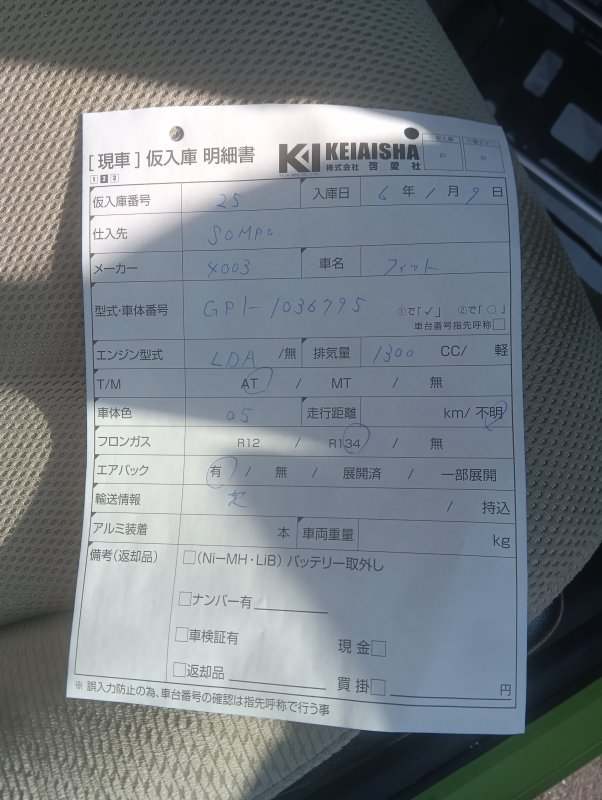 [現車] 仮入庫 明細書
1 2 3
KI KEIAISHA
株式会社 啓愛社
仮入庫番号 25 入庫日 6年 1月 9日
仕入先 SOMPO
メーカー 4003 車名 フィット
型式・車体番号 GP1-1036795
車台番号指先呼称□
エンジン型式 LDA /無 排気量 1300 CC/ 軽
T/M AT / MT / 無
車体色 05 走行距離 km/不明
フロンガス R12 / R134 / 無
エアバック 有 / 無 / 展開済 / 一部展開
輸送情報 / 持込
アルミ装着 本 車両重量 kg
備考(返却品) □(Ni-MH・LiB)バッテリー取外し
□ナンバー有
□車検証有 現金□
□返却品 買掛□ 円
※ 誤入力防止の為、車台番号の確認は指先呼称で行う事